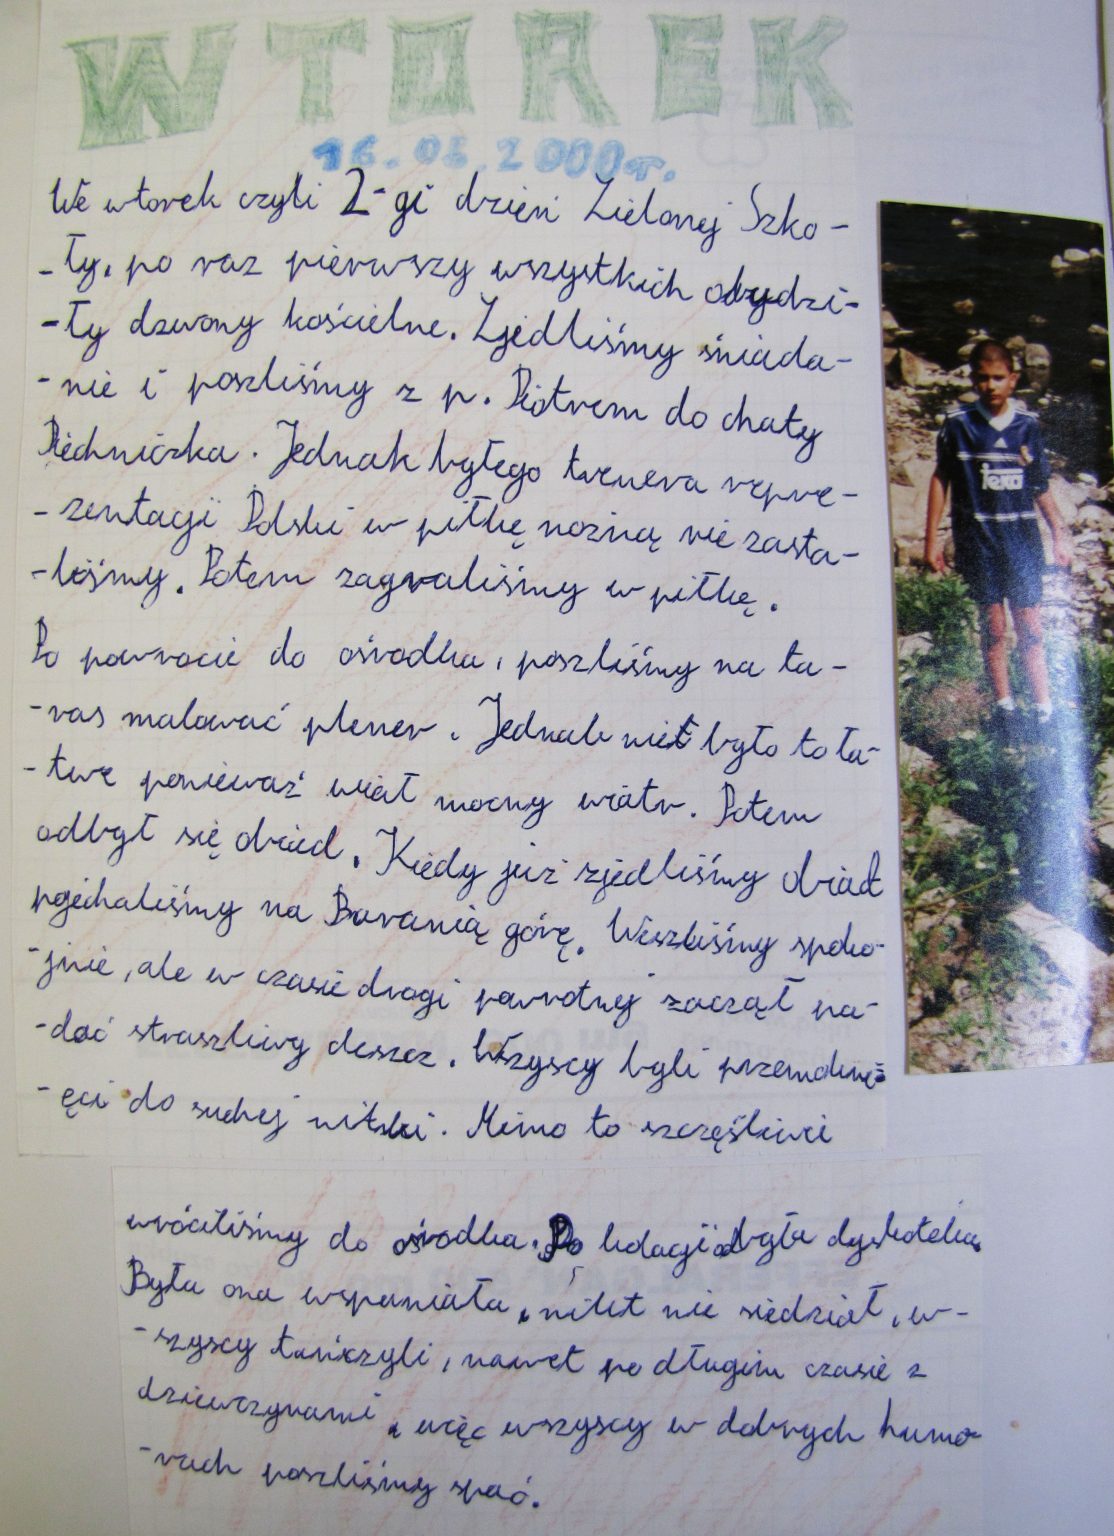 WTOREK
16.05.2000r.
We wtorek czyli 2-gi dzień Zielonej Szko-
-ły, po raz pierwszy wszystkich obydzi-
-ły dzwony kościelne. Zjedliśmy śniada-
-nie i poszliśmy z p. Piotrem do chaty
Piechniczka. Jednak byłego trenera repre-
-zentacji Polski w piłkę nożną nie zasta-
-liśmy. Potem zagraliśmy w piłkę.
Po powrocie do ośrodka, poszliśmy na ta-
-ras malować plener. Jednak nie było to ła-
-twe ponieważ wiał mocny wiatr. Potem
odbył się obiad. Kiedy już zjedliśmy obiad
pojechaliśmy na Baranią górę. Weszliśmy spoko-
-jnie, ale w czasie drogi powrotnej zaczął pa-
-dać straszliwy deszcz. Wszyscy byli przemoknię-
-ęci do suchej nitki. Mimo to szczęśliwi
wróciliśmy do ośrodka. Po kolacji była dyskoteka.
Była ona wspaniała, nikt nie siedział, w-
-szyscy tańczyli, nawet po długim czasie z
dziewczynami, więc wszyscy w dobrych humo-
-rach poszliśmy spać.
teka